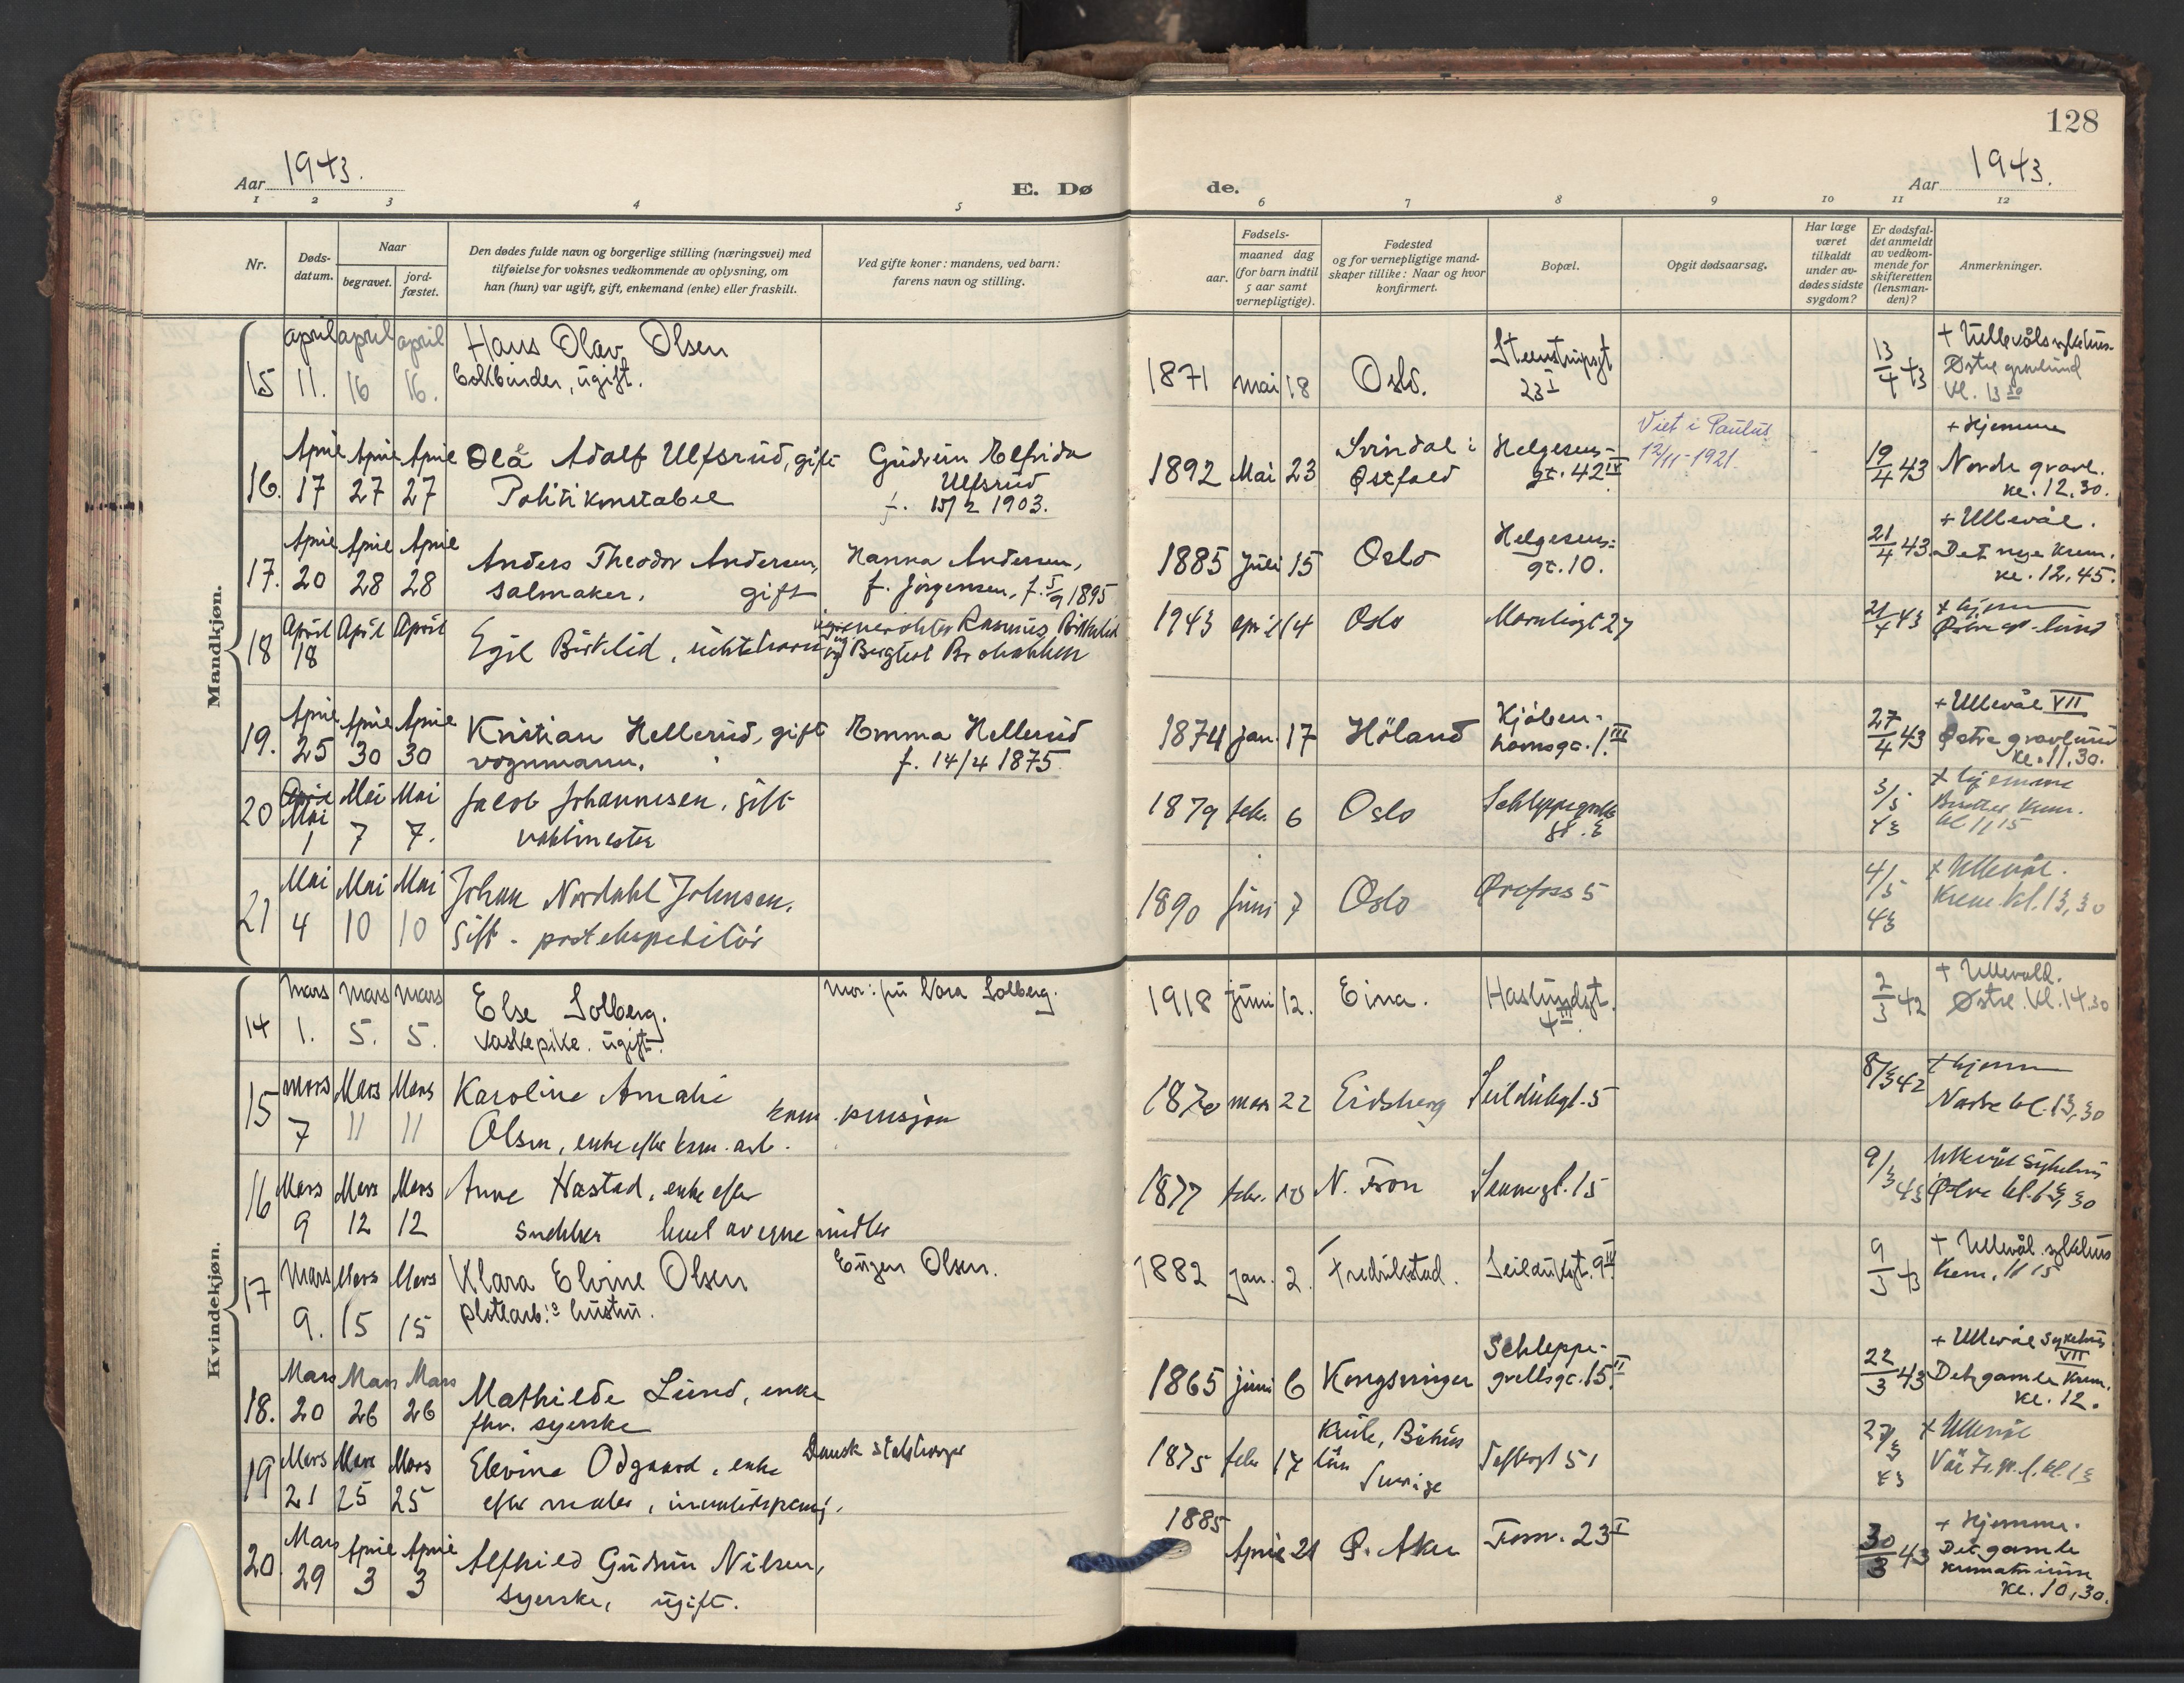 128
Aar 1943.
E. Dø
de.
Aar 1943.
1 2 3 4 5 6 7 8 9 10 11 12
Nr.
Døds-
datum.
Naar
begravet.
jord-
fæstet.
Den dødes fulde navn og borgerlige stilling (næringsvei) med
tilføielse for voksnes vedkommende av oplysning, om
han (hun) var ugift, gift, enkemand (enke) eller fraskilt.
Ved gifte koner: mandens, ved barn:
farens navn og stilling.
Fødsels-
aar.
maaned dag
(for barn indtil
5 aar samt
vernepligtige).
Fødested
og for vernepligtige mand-
skaper tillike: Naar og hvor
konfirmert.
Bopæl.
Opgit dødsaarsag.
Har læge
været
tilkaldt
under av-
dødes sidste
sygdom?
Er dødsfal-
det anmeldt
av vedkom-
mende for
skifteretten
(lensman-
den)?
Anmerkninger.
Mandkjøn.
15 april 11. april 16 april 16. Hans Olav Olsen
bokbinder, ugift.
1871 mai 18 Oslo. 23 I
13/4 43
Østre gravlund
kl. 13 30
16. April 17 April 27 April 27 Ola Adolf Ulfsrud, gift
Politikonstabel
Gudrun Elfrida
Ulfsrud
f. 15/2 1903.
1892 Mai 23 Svindal i
Østfold
Helgesens-
gt. 42 IV
Viet i Paulus
12/11-1921.
19/4 43
+ Hjemme
Nordre gravl.
kl. 12,30.
17. April 20 April 28 April 28 Anders Theodor Andersen,
salmaker, gift
Hanna Andersen,
f. Jörgensen, f. 5/9 1895
1885 Juli 15 Oslo Helgesens-
gt. 10.
21/4 43.
+ Ullevål.
Det nye krem.
kl. 12,45.
18 April 18 April April Egil Birkelid,
Rasmus Birkelid
og Bergliot
1943 april 14 Oslo
21/4 43
+ hjemme
19. April 25 April 30 April 30 Kristian Hellerud, gift
vognmann.
Emma Hellerud
f. 14/4 1875.
1874 jan. 17 Höland Kjöben-
havnsgt. 1. III
27/4 43
+ Ullevål VII
Östre gravlund
kl. 11,30.
20 Mai 1 Mai 7 Mai 7. Jacob Johannesen, gift
vaktmester
1879 febr. 6 Oslo
3/5 43
+ hjemme
kl 11 15
21 Mai 4 Mai 10 Mai 10 Johan Nordahl Johnsen.
Gift - postekspeditör
1890 Juni 7 Oslo Örefoss 5
4/5 43
+ Ullevål.
Krem. kl. 13,30
Kvindekjøn.
14 Mars 1. Mars 5. Mars 5. Else Solberg.
Vaskepike. ugift.
Mor: fru Nora Solberg.
1918 juni 12. Eina. Haslundgt.
4 III
2/3 42
+ Ullevål.
Østre. kl. 14.30
15 mars 7 Mars 11 Mars 11 Karoline Amalie
Olsen, enke efter kom. arb.
kom. pensjon
1870 mars 22 Eidsberg Seilduksgt. 5
8/3 42
+ hjemme
Nordre kl. 13,30
16 Mars 9 Mars 12 Mars 12 Anne Hastad, enke efter
snekker levet av egne midler
1877 febr. 10 N. Fron Sannergt. 15
9/3 43
Ullevål Sykehus
Østre kl. 13,30
17 Mars 9. Mars 15 Mars 15 Klara Elvine Olsen
hustru.
Eugen Olsen.
1882 jan. 2. Fredrikstad. Seilduksgt. 9 IV
9/3 43
+ Ullevål sykehus
Krem. 11 15
18. Mars 20 Mars 26 Mars 26 Mathilde Lund, enke
fhv. syerske
1865 juni 6 Kongsvinger Schleppe-
grellsgt. 15. II
22/3 43
+ Ullevål Sykehus
VII
Det gamle krem.
kl. 12.
19 Mars 21 Mars 25 Mars 25 Elevine Odgaard, enke
efter maler,
Dansk statsborger
1875 febr 17
län
Sverige
Toftesgt 51
43
+ Ullevål
20. Mars 29 April 3 April 3 Alfhild Gudrun Nilsen,
syerske, ugift.
1885 April 21 Ö. Aker Fossv. 23 I
30/3 43
+ Hjemme.
Det gamle
krematorium
kl. 10,30.